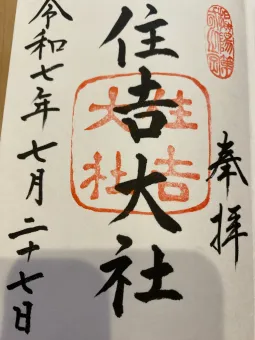 奉拝
住吉大社
住吉大社
令和七年七月二十七日